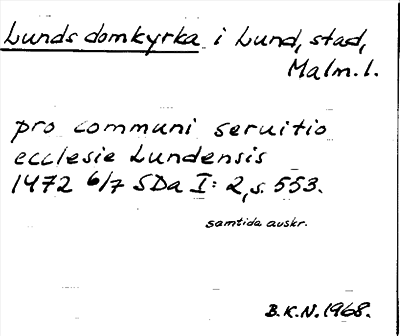 Lunds domkyrka i Lund, stad,
Malm. l.
pro communi seruitio
ecclesie Lundensis
1472 6/7 SDa I: 2, s. 553.
samtida avskr.
B.K.N. 1968.